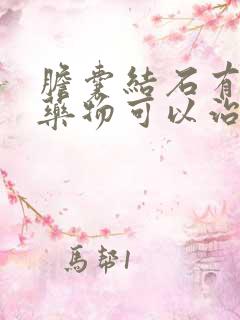 膽囊結石有
藥物可以治
馬幫1